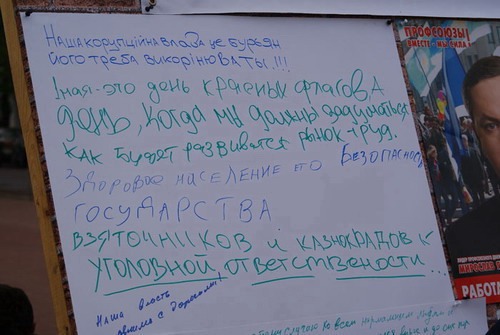 Наша корупційна влада це бур'ян
його треба викорінювати!!!
1 мая - это день красных флагов а
день, когда мы должны задуматься
как будет развиватся рынок труд.
Здоровое население это безопаснос
государства
Взяточников и казнокрадов к
уголовной, ответствености...
Наша власть
ПРОФСОЮЗЫ
ВМЕСТЕ - МЫ СИЛА!
РАБОТА